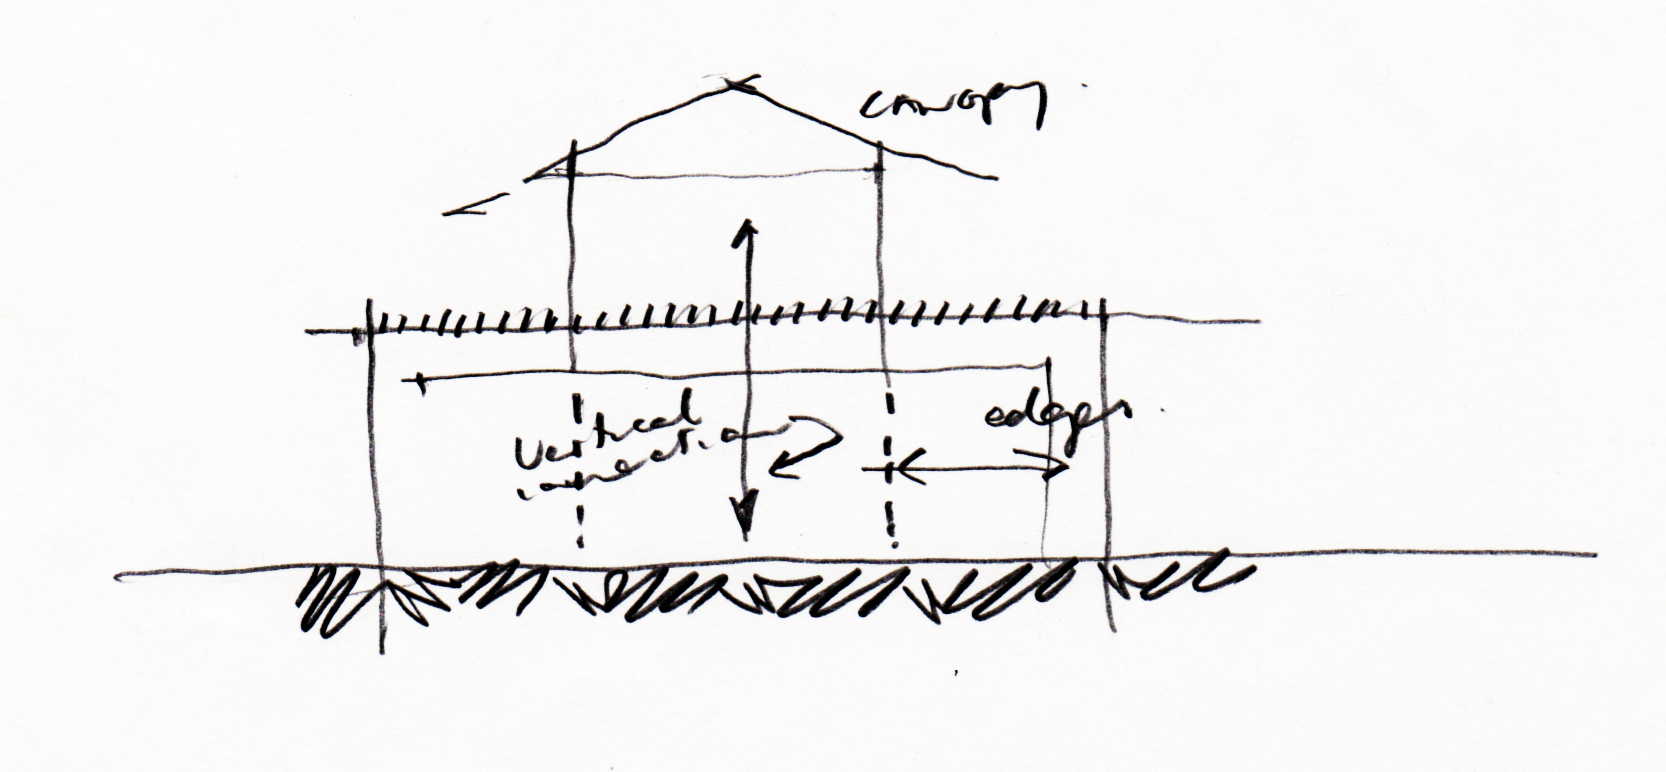 CANOPY
edges
Vertical
connection